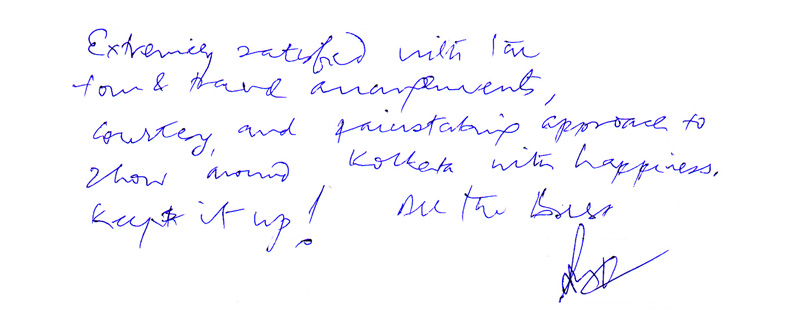 Extremely satisfied with the
tour & travel arrangements,
courtesy, and painstaking approach to
show around Kolkata with happiness.
Keep it up! All the Best